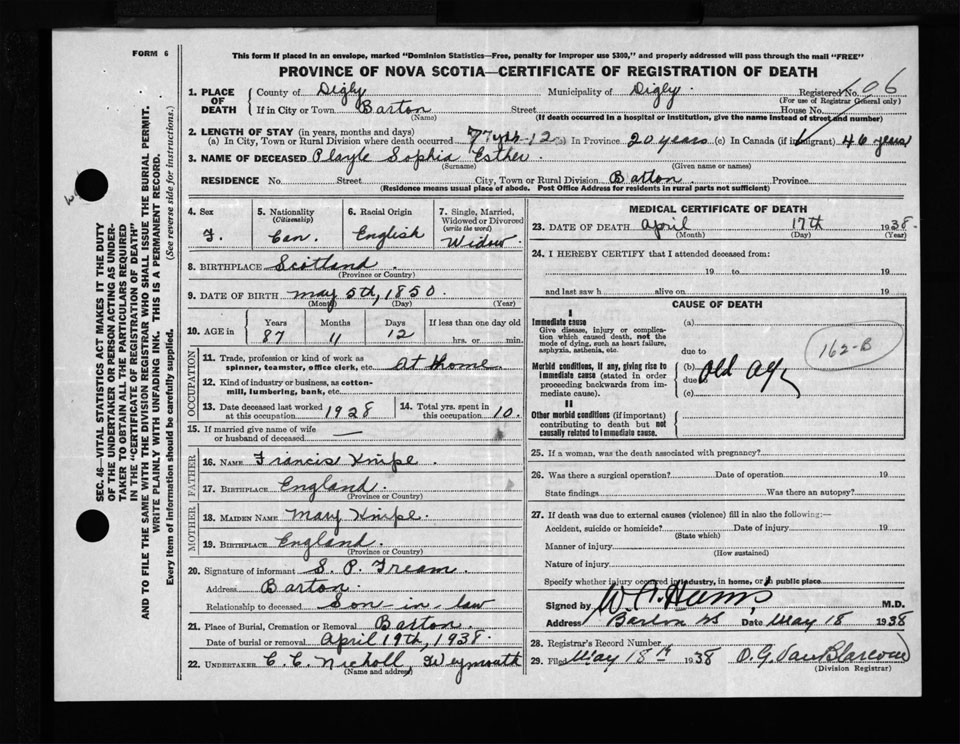 FORM 6
This form if placed in an envelope, marked "Dominion Statistics—Free, penalty for improper use $300," and properly addressed will pass through the mail "FREE"
PROVINCE OF NOVA SCOTIA—CERTIFICATE OF REGISTRATION OF DEATH
1. PLACE OF DEATH County of Digby Municipality of Digby. Registered No. 06
(For use of Registrar General only)
If in City or Town Barton Street House No.
(Name) (If death occurred in a hospital or institution, give the name instead of street and number)
2. LENGTH OF STAY (in years, months and days)
(a) In City, Town or Rural Division where death occurred (b) In Province 20 years (c) In Canada (if immigrant) 46 years
3. NAME OF DECEASED Playle Sophia Esther.
(Surname) (Given name or names)
RESIDENCE No. Street City, Town or Rural Division Barton. Province
(Residence means usual place of abode. Post Office Address for residents in rural parts not sufficient)
4. Sex F.
5. Nationality (Citizenship) Can.
6. Racial Origin English
7. Single, Married, Widowed or Divorced (write the word) Widow.
8. BIRTHPLACE Scotland.
(Province or Country)
9. DATE OF BIRTH May 5th, 1850.
(Month) (Day) (Year)
10. AGE in Years 87 Months 11 Days 12 If less than one day old hrs. or min.
OCCUPATION
11. Trade, profession or kind of work as spinner, teamster, office clerk, etc. At Home.
12. Kind of industry or business, as cotton-mill, lumbering, bank, etc.
13. Date deceased last worked at this occupation 1928
14. Total yrs. spent in this occupation 10.
15. If married give name of wife or husband of deceased —
FATHER
16. NAME Francis Knipe.
17. BIRTHPLACE England.
(Province or Country)
MOTHER
18. MAIDEN NAME Mary Knipe.
19. BIRTHPLACE England.
(Province or Country)
20. Signature of informant S. P. Tream.
Address Barton.
Relationship to deceased Son-in-law
21. Place of Burial, Cremation or Removal Barton.
Date of burial or removal April 19th, 1938.
22. UNDERTAKER C. C. Nicholl, Weymouth
(Name and address)
MEDICAL CERTIFICATE OF DEATH
23. DATE OF DEATH April 17th 1938.
(Month) (Day) (Year)
24. I HEREBY CERTIFY that I attended deceased from:
19 to 19
and last saw h alive on 19
CAUSE OF DEATH
I
Immediate cause
Give disease, injury or complication which caused death, not the mode of dying, such as heart failure, asphyxia, asthenia, etc.
(a)
due to
Morbid conditions, if any, giving rise to immediate cause (stated in order proceeding backwards from immediate cause).
(b) Old Age
due to
(c)
162-B
II
Other morbid conditions (if important) contributing to death but not causally related to immediate cause.
25. If a woman, was the death associated with pregnancy?
26. Was there a surgical operation? Date of operation 19
State findings Was there an autopsy?
27. If death was due to external causes (violence) fill in also the following:—
Accident, suicide or homicide? Date of injury 19
(State which)
Manner of injury
(How sustained)
Nature of injury
Specify whether injury occurred in industry, in home, or in public place
Signed by M.D.
Address Barton NS Date May 18 1938
28. Registrar's Record Number
29. Filed May 18th 1938 O. G. VanBlarcom
(Division Registrar)
SEC. 46—VITAL STATISTICS ACT MAKES IT THE DUTY
OF THE UNDERTAKER OR PERSON ACTING AS UNDER-
TAKER TO OBTAIN ALL THE PARTICULARS REQUIRED
IN THE "CERTIFICATE OF REGISTRATION OF DEATH"
AND TO FILE THE SAME WITH THE DIVISION REGISTRAR WHO SHALL ISSUE THE BURIAL PERMIT.
WRITE PLAINLY WITH UNFADING INK. THIS IS A PERMANENT RECORD.
Every item of information should be carefully supplied. (See reverse side for instructions.)